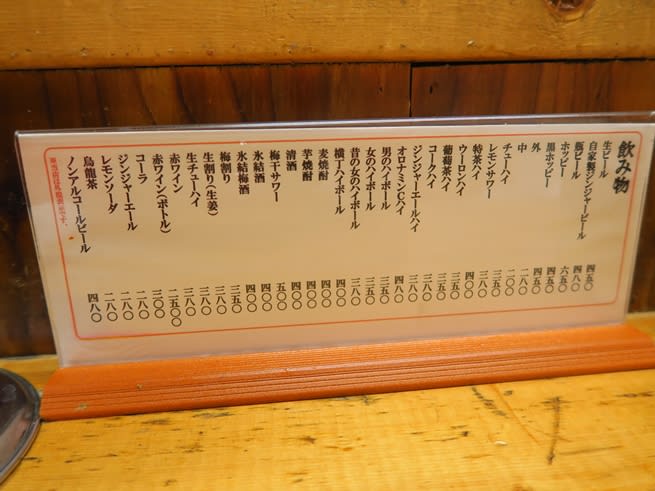 飲み物
生ビール 四五〇
自家製ジンジャービール 四八〇
瓶ビール 六五〇
ホッピー 四五〇
黒ホッピー 四五〇
外 二八〇
中 二〇〇
チューハイ 三五〇
レモンサワー 三八〇
特茶ハイ 四〇〇
ウーロンハイ 三五〇
葡萄茶ハイ 三五〇
コークハイ 三八〇
ジンジャーエールハイ 三八〇
オロナミンCハイ 四八〇
男のハイボール 三五〇
女のハイボール 三五〇
昔の女のハイボール 三八〇
横丁ハイボール 四〇〇
麦焼酎 四〇〇
芋焼酎 四〇〇
清酒 四〇〇
梅干サワー 五〇〇
氷結酒 四〇〇
氷結梅酒 四〇〇
梅割り 三五〇
生割り(生姜) 三八〇
生チューハイ 三八〇
赤ワイン 三〇〇
赤ワイン(ボトル) 二五〇〇
コーラ 二八〇
ジンジャーエール 二八〇
レモンソーダ 二八〇
烏龍茶 二八〇
ノンアルコールビール 四八〇